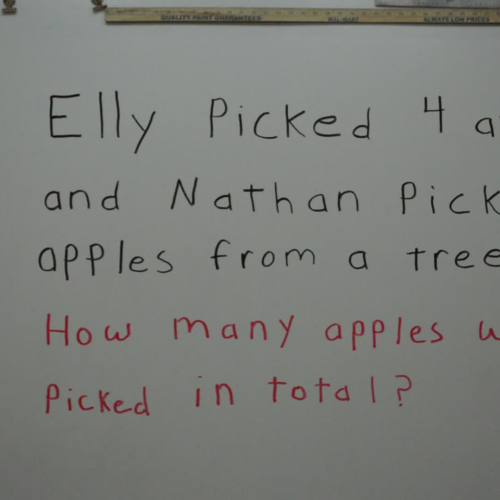 QUALITY PAINT GUARANTEED ALWAYS LOW PRICES
Elly Picked 4 a
and Nathan Pick
apples from a tree
How many apples w
Picked in total?